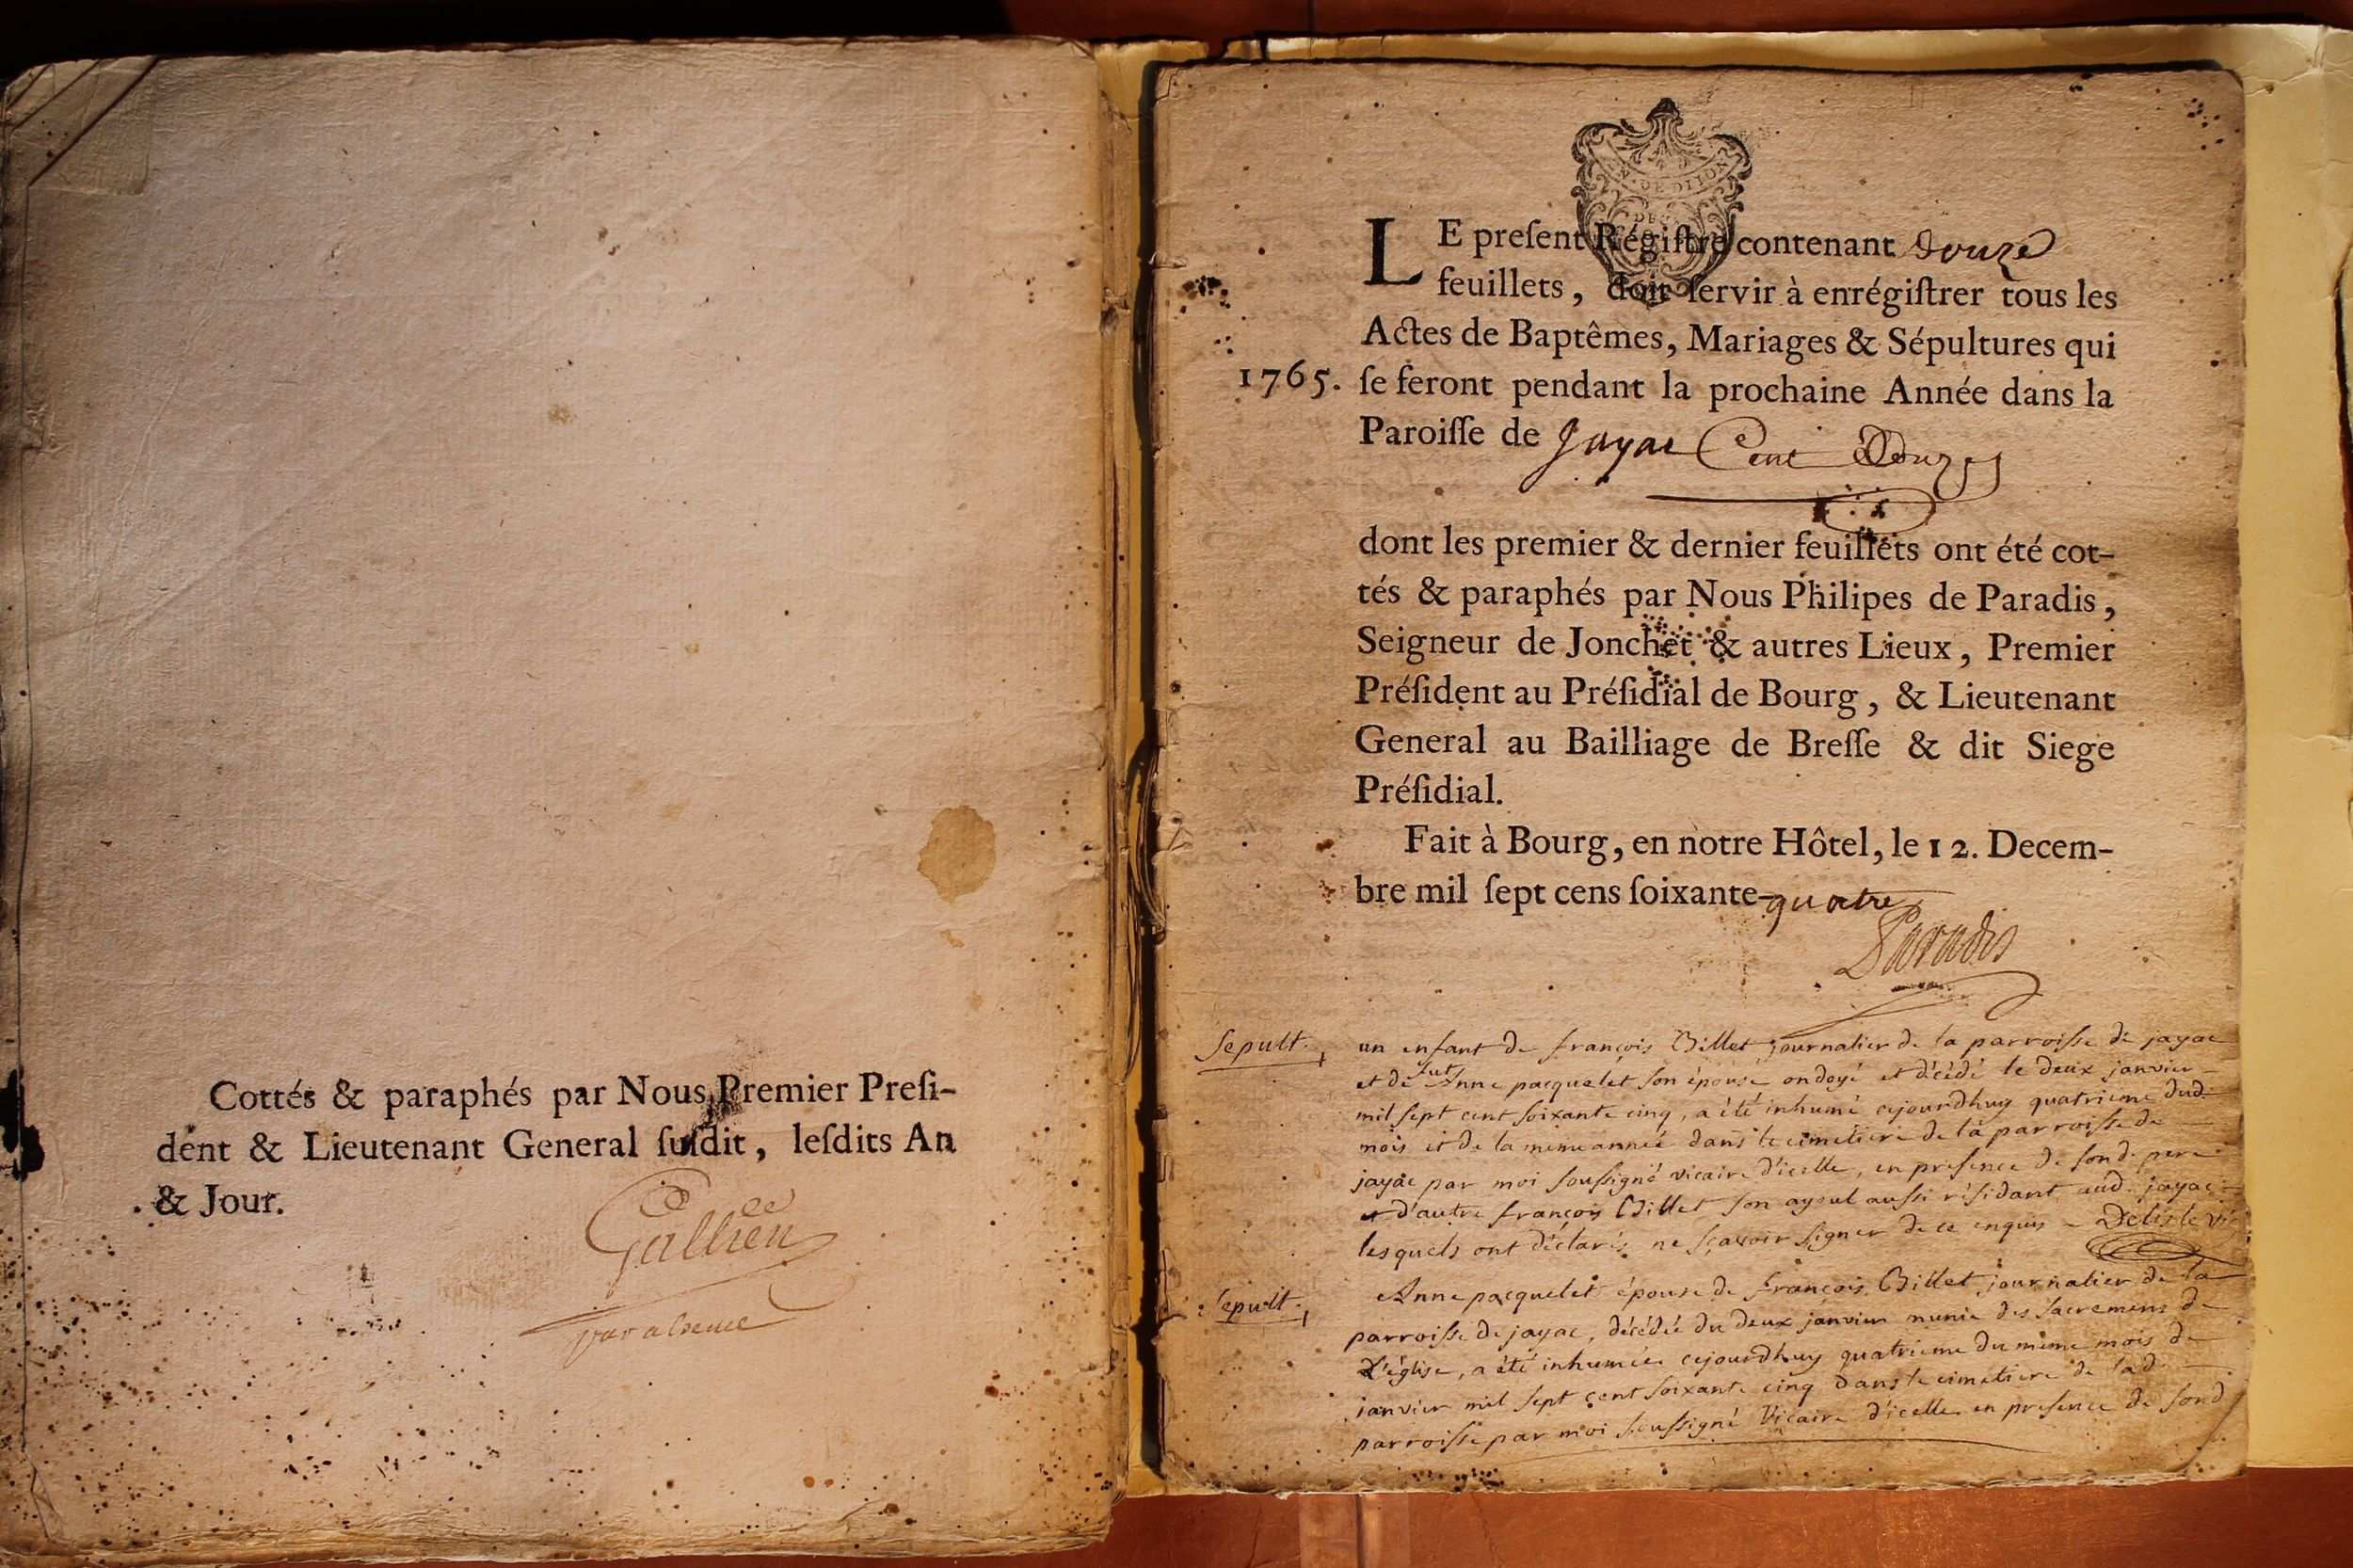 Cottés & paraphés par Nous Premier Presi-
dent & Lieutenant General susdit, lesdits An
& Jour.
Gallien
par absence
G. DE DIJON
LE present Régistre contenant douze
feuillets, doit servir à enrégistrer tous les
Actes de Baptêmes, Mariages & Sépultures qui
1765. se feront pendant la prochaine Année dans la
Paroisse de Jayac Cent Douze
dont les premier & dernier feuillets ont été cot-
tés & paraphés par Nous Philipes de Paradis,
Seigneur de Jonchet & autres Lieux, Premier
Président au Présidial de Bourg, & Lieutenant
General au Bailliage de Bresse & dit Siege
Présidial.
Fait à Bourg, en notre Hôtel, le 12. Decem-
bre mil sept cens soixante-quatre
Paradis
Sepult. un enfant de françois Billet journalier de la parroisse de jayac
et de fut Anne pacquelet son épouse ondoyé et décédé le deux janvier
mil sept cent soixante cinq, a été inhumé cejourdhuy quatrieme dud.
mois et de la meme année dans le cimetiere de la parroisse de
jayac par moi soussigné vicaire d'icelle, en presence de sond. pere
et d'autre françois Billet son ayeul aussi résidant aud. jayac
lesquels ont déclarés ne sçavoir signer de ce enquis Delisle vic
Sepult. Anne pacquelet épouse de françois Billet journalier de la
parroisse de jayac, décédée du deux janvier munie des sacremens de
L'église, a été inhumée cejourdhuy quatrieme du même mois de
janvier mil sept cent soixante cinq dans le cimetiere de lad.
parroisse par moi soussigné Vicaire d'icelle en presence de sond